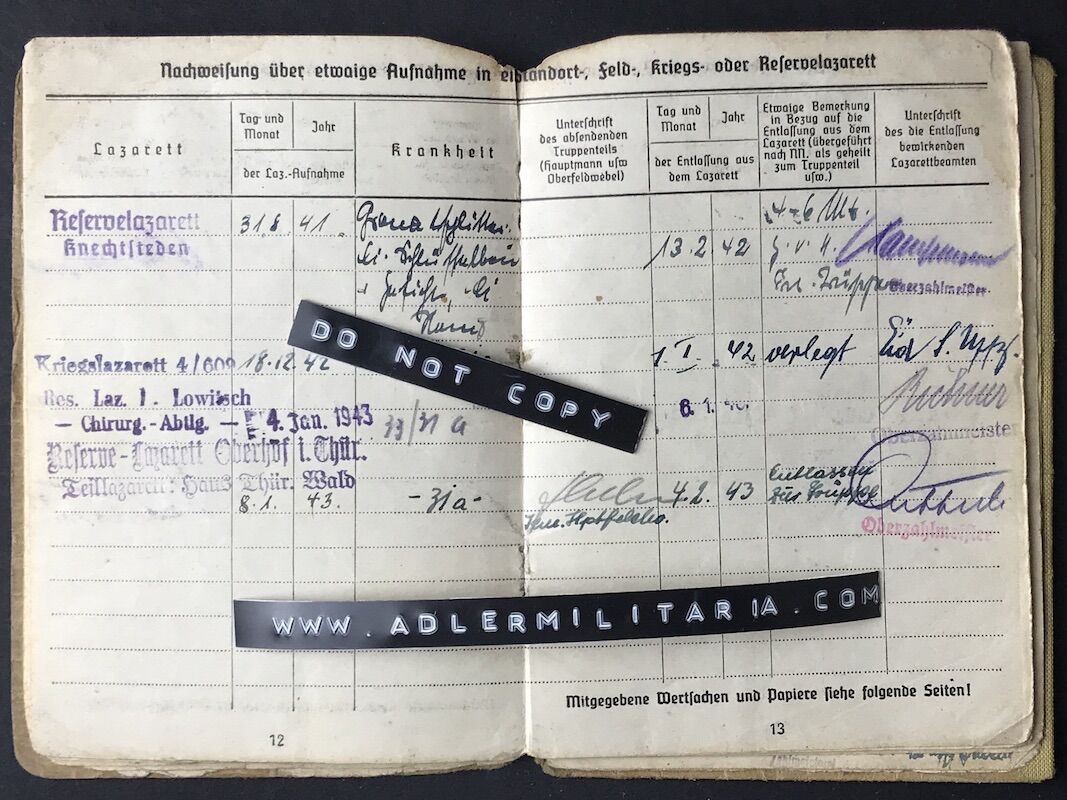 Nachweisung über etwaige Aufnahme in ein Standort-, Feld-, Kriegs- oder Reservelazarett
Lazarett
Tag und Monat
Jahr
der Laz.-Aufnahme
Krankheit
Unterschrift
des absendenden
Truppenteils
(Hauptmann usw
Oberfeldwebel)
Tag und
Monat
Jahr
der Entlassung aus
dem Lazarett
Etwaige Bemerkung
in Bezug auf die
Entlassung aus dem
Lazarett (übergeführt
nach NN. als geheilt
zum Truppenteil
usw.)
Unterschrift
des die Entlassung
bewirkenden
Lazarettbeamten
Reservelazarett
Knechtsteden
31.8. 41.
Granatsplitter
li. Schlüsselbein
+ Gesicht, li
Hand
13.2. 42
4-6 Mt.
g.v.H.
Ers. Truppe
Oberzahlmeister
Kriegslazarett 4/609 18.12. 42
1. I. 42 verlegt
Res. Laz. I. Lowitsch
— Chirurg.-Abtlg. — 4. Jan. 1943
31 a
6. 1.
Oberzahlmeister
Reserve-Lazarett Oberhof i. Thür.
Teillazarett: Haus Thür. Wald
8.1. 43. -31a-
4.2. 43
Entlassen
zur Truppe
Hptfeldw.
Oberzahlmeister
DO NOT COPY
WWW.ADLERMILITARIA.COM
Mitgegebene Wertsachen und Papiere siehe folgende Seiten!
12
13